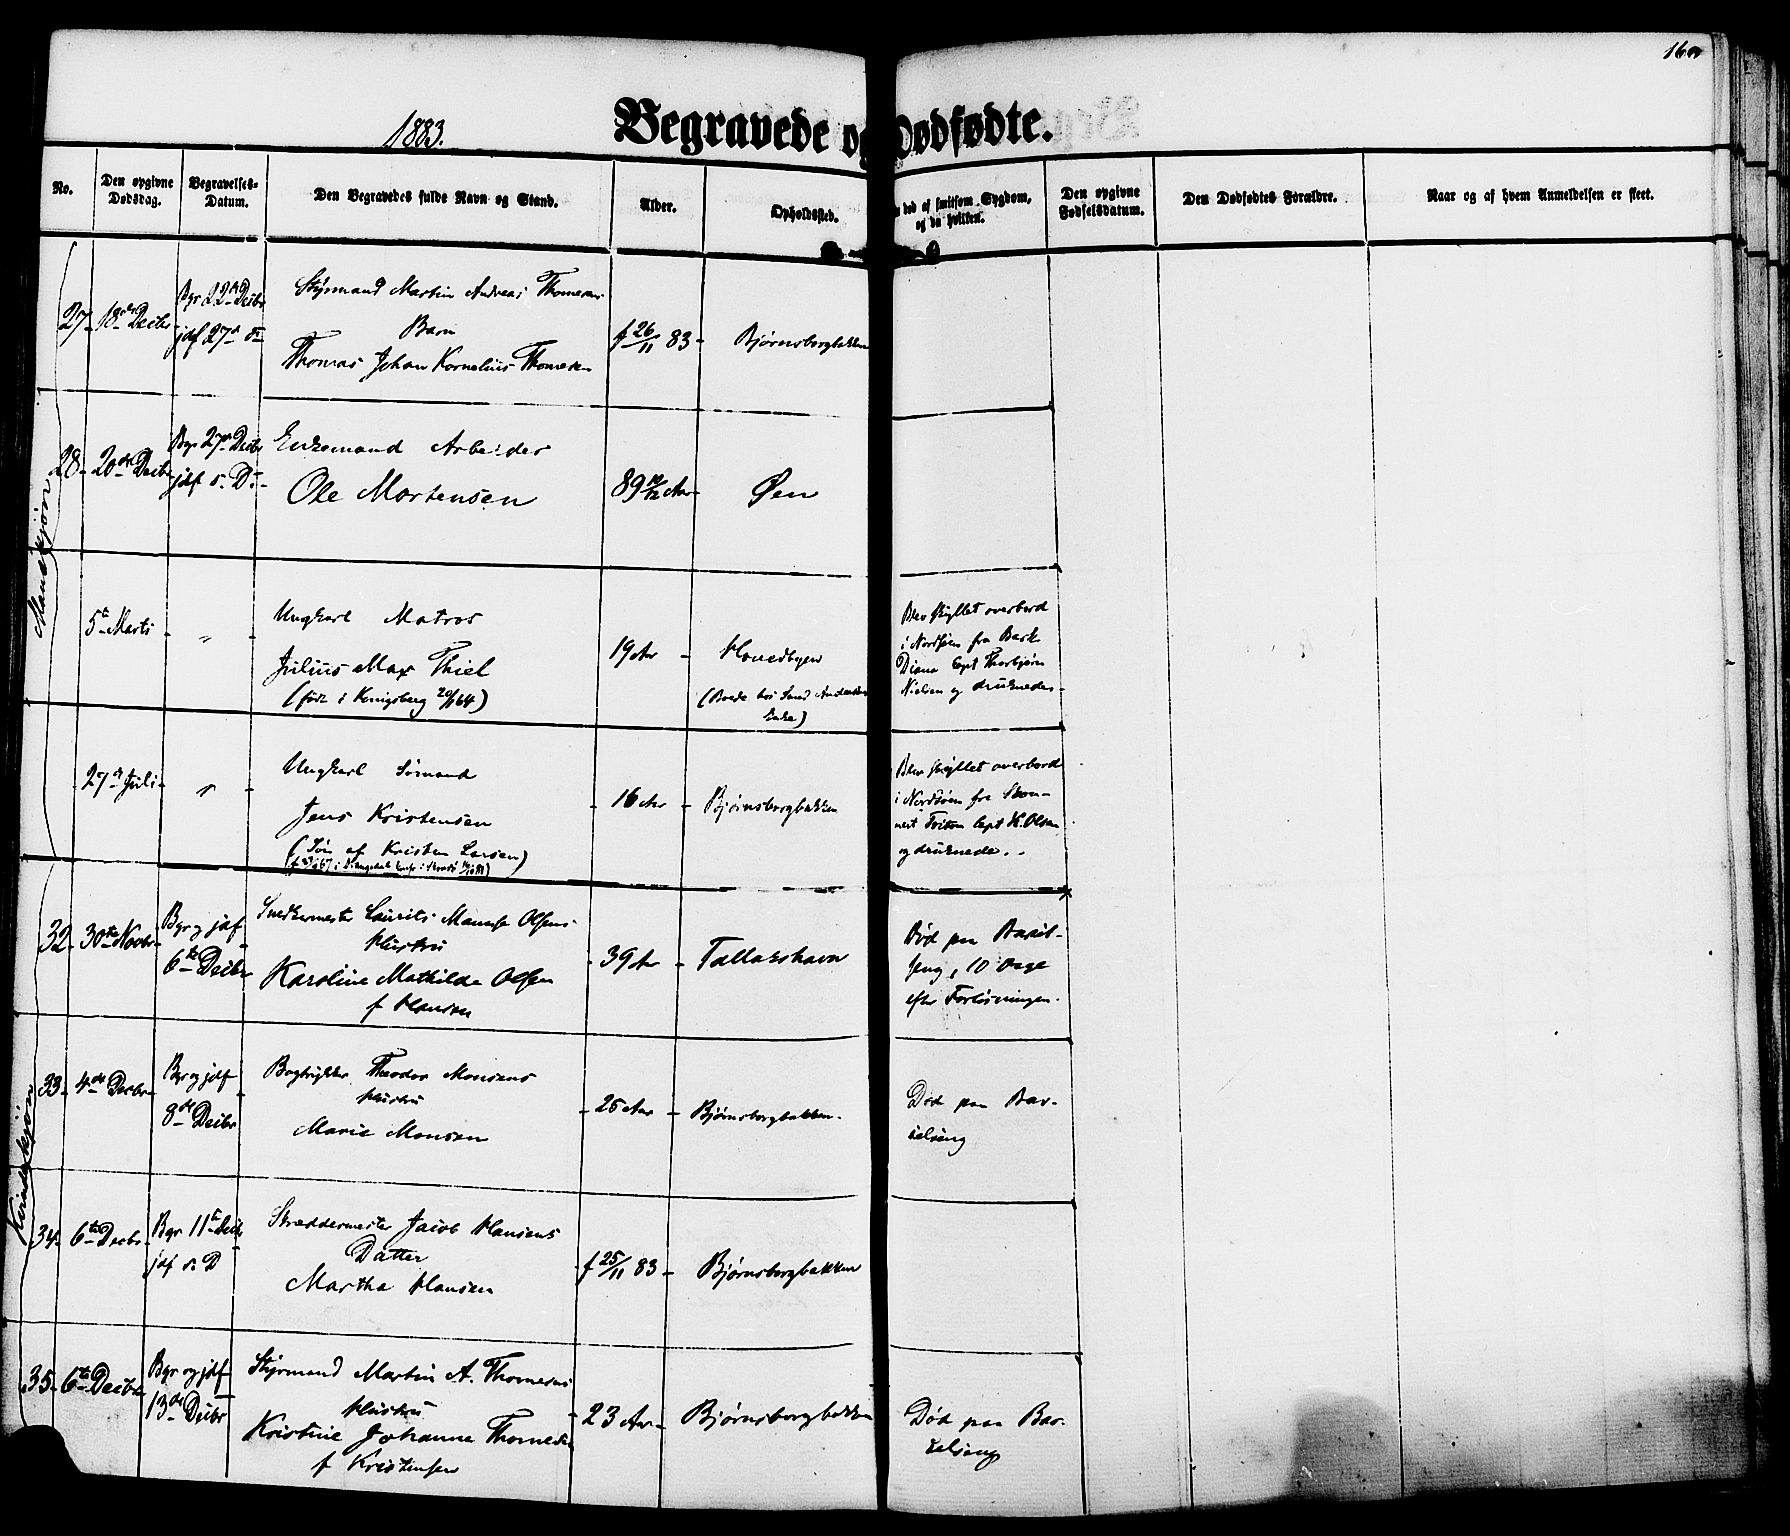 160
1883.
Begravede og Dødfødte.
No.
Den opgivne Dødsdag.
Begravelses-Datum.
Den Begravedes fulde Navn og Stand.
Alder.
Opholdssted.
død af smitsom Sygdom, og da hvilken.
Den opgivne Fødselsdatum.
Den Dødfødtes Forældre.
Naar og af hvem Anmeldelsen er skeet.
Mandkjøn
27 18de Decbr Bgr 22de Decbr
jdf 27de
Styrmand Martin Andreas Thomesens
Barn
Thomas Johan Kornelius Thomesen
f 26/11 83
Bjørnsborgbakken
28 20de Decbr Bgr 27de Decbr
jdf s. D.
Enkemand Arbeider
Ole Mortensen
89 10/12 Aar
Øen
5te Marts "
Ungkarl Matros
Julius Max Thiel
(født i Kønigsberg 20/1 64)
19 Aar
Hovedbyen
(Boede hos Smed Andersens
Enke)
Blev skyllet overbord
i Nordsøen fra Bark
Diana Capt Thorbjørn
Nielsen og druknede
27de Juli "
Ungkarl Sømand
Jens Kristensen
(Søn af Kristen Larsen)
16 Aar
Bjørnsborgbakken
Blev skyllet overbord
i Nordsøen fra Skon-
nert Triton Capt K. Olsen
og druknede.
Kvindekjøn
32 30te Novbr Bgr og jdf
6te Decbr
Snedkermester Laurits Olsens
Hustru
Karoline Mathilde Olsen
f Hansen
39 Aar
Tallakshavn
Død paa Barsel-
seng, 10 Dage
efter Forløsningen.
33 4de Decbr Bgr og jdf
8de Decbr
Bogtrykker Theodor Monsens
Hustru
Marie Monsen
25 Aar
Bjørnsborgbakken
Død paa Bar-
selseng
34 6te Decbr Bgr 11te Decbr
jdf s. D
Skræddermester Jacob Hansens
Datter
Martha Hansen
f 25/11 83
Bjørnsborgbakken
35 6te Decbr Bgr og jdf
13de Decbr
Styrmand Martin A. Thomesens
Hustru
Kristine Johanne Thomesen
f Kristensen
23 Aar
Bjørnsborgbakken
Død paa Bar-
selseng